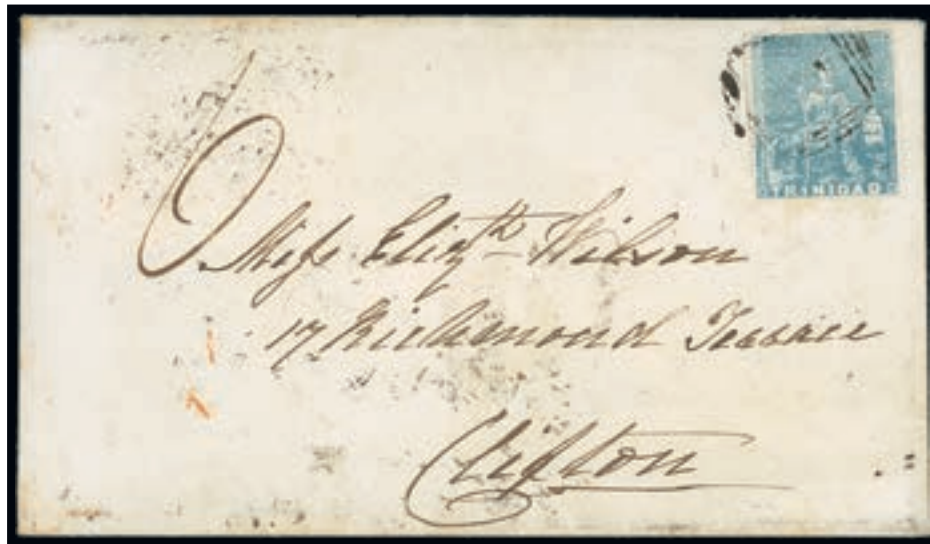 TRINIDAD
Miss Elizth Wilson
17 Richmond Terrace
Clifton